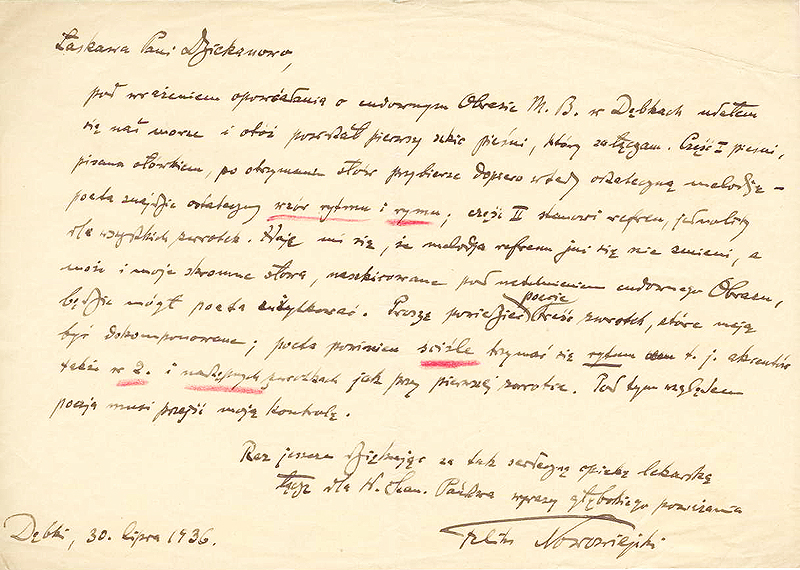 Łaskawa Pani Dziekanowo,
pod wrażeniem opowiadania o cudownym Obrazie M. B. w Dębkach udałem
się nad morze i otóż powstał pierwszy szkic pieśni, który załączam. Część I pieśni,
pisana ołówkiem, po otrzymaniu słów przybierze dopiero wtedy ostateczną melodję –
poeta znajdzie ostateczny wzór rytmu i rymu; część II stanowi refren, jednolity
dla wszystkich zwrotek. Zdaję mi się, że melodja refrenu już się nie zmieni, a
może i moje skromne słowa, naszkicowane pod natchnieniem cudownego Obrazu,
będzie mógł poeta zużytkować. Proszę powiedzieć poecie treść zwrotek, które mają
być dokomponowane; poeta powinien ściśle trzymać się rytmu t. j. akcentów
także w 2. i następnych zwrotkach jak przy pierwszej zwrotce. Pod tym względem
poezja musi przejść moją kontrolę.
Raz jeszcze dziękując za tak serdeczną opiekę lekarską
łączę dla W. Szan. Państwa wyrazy głębokiego poważania
Feliks Nowowiejski
Dębki, 30. lipca 1936.